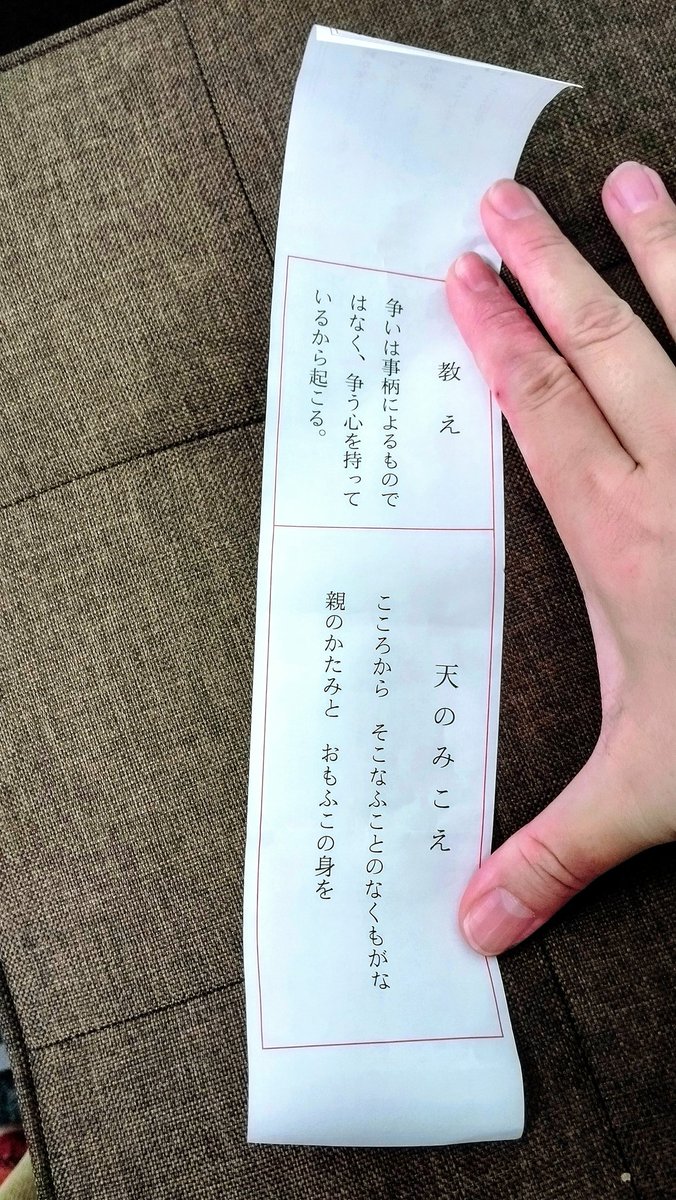 教え
争いは事柄によるもので
はなく、争う心を持って
いるから起こる。
天のみこえ
こころから　そこなふことのなくもがな
親のかたみと　おもふこの身を